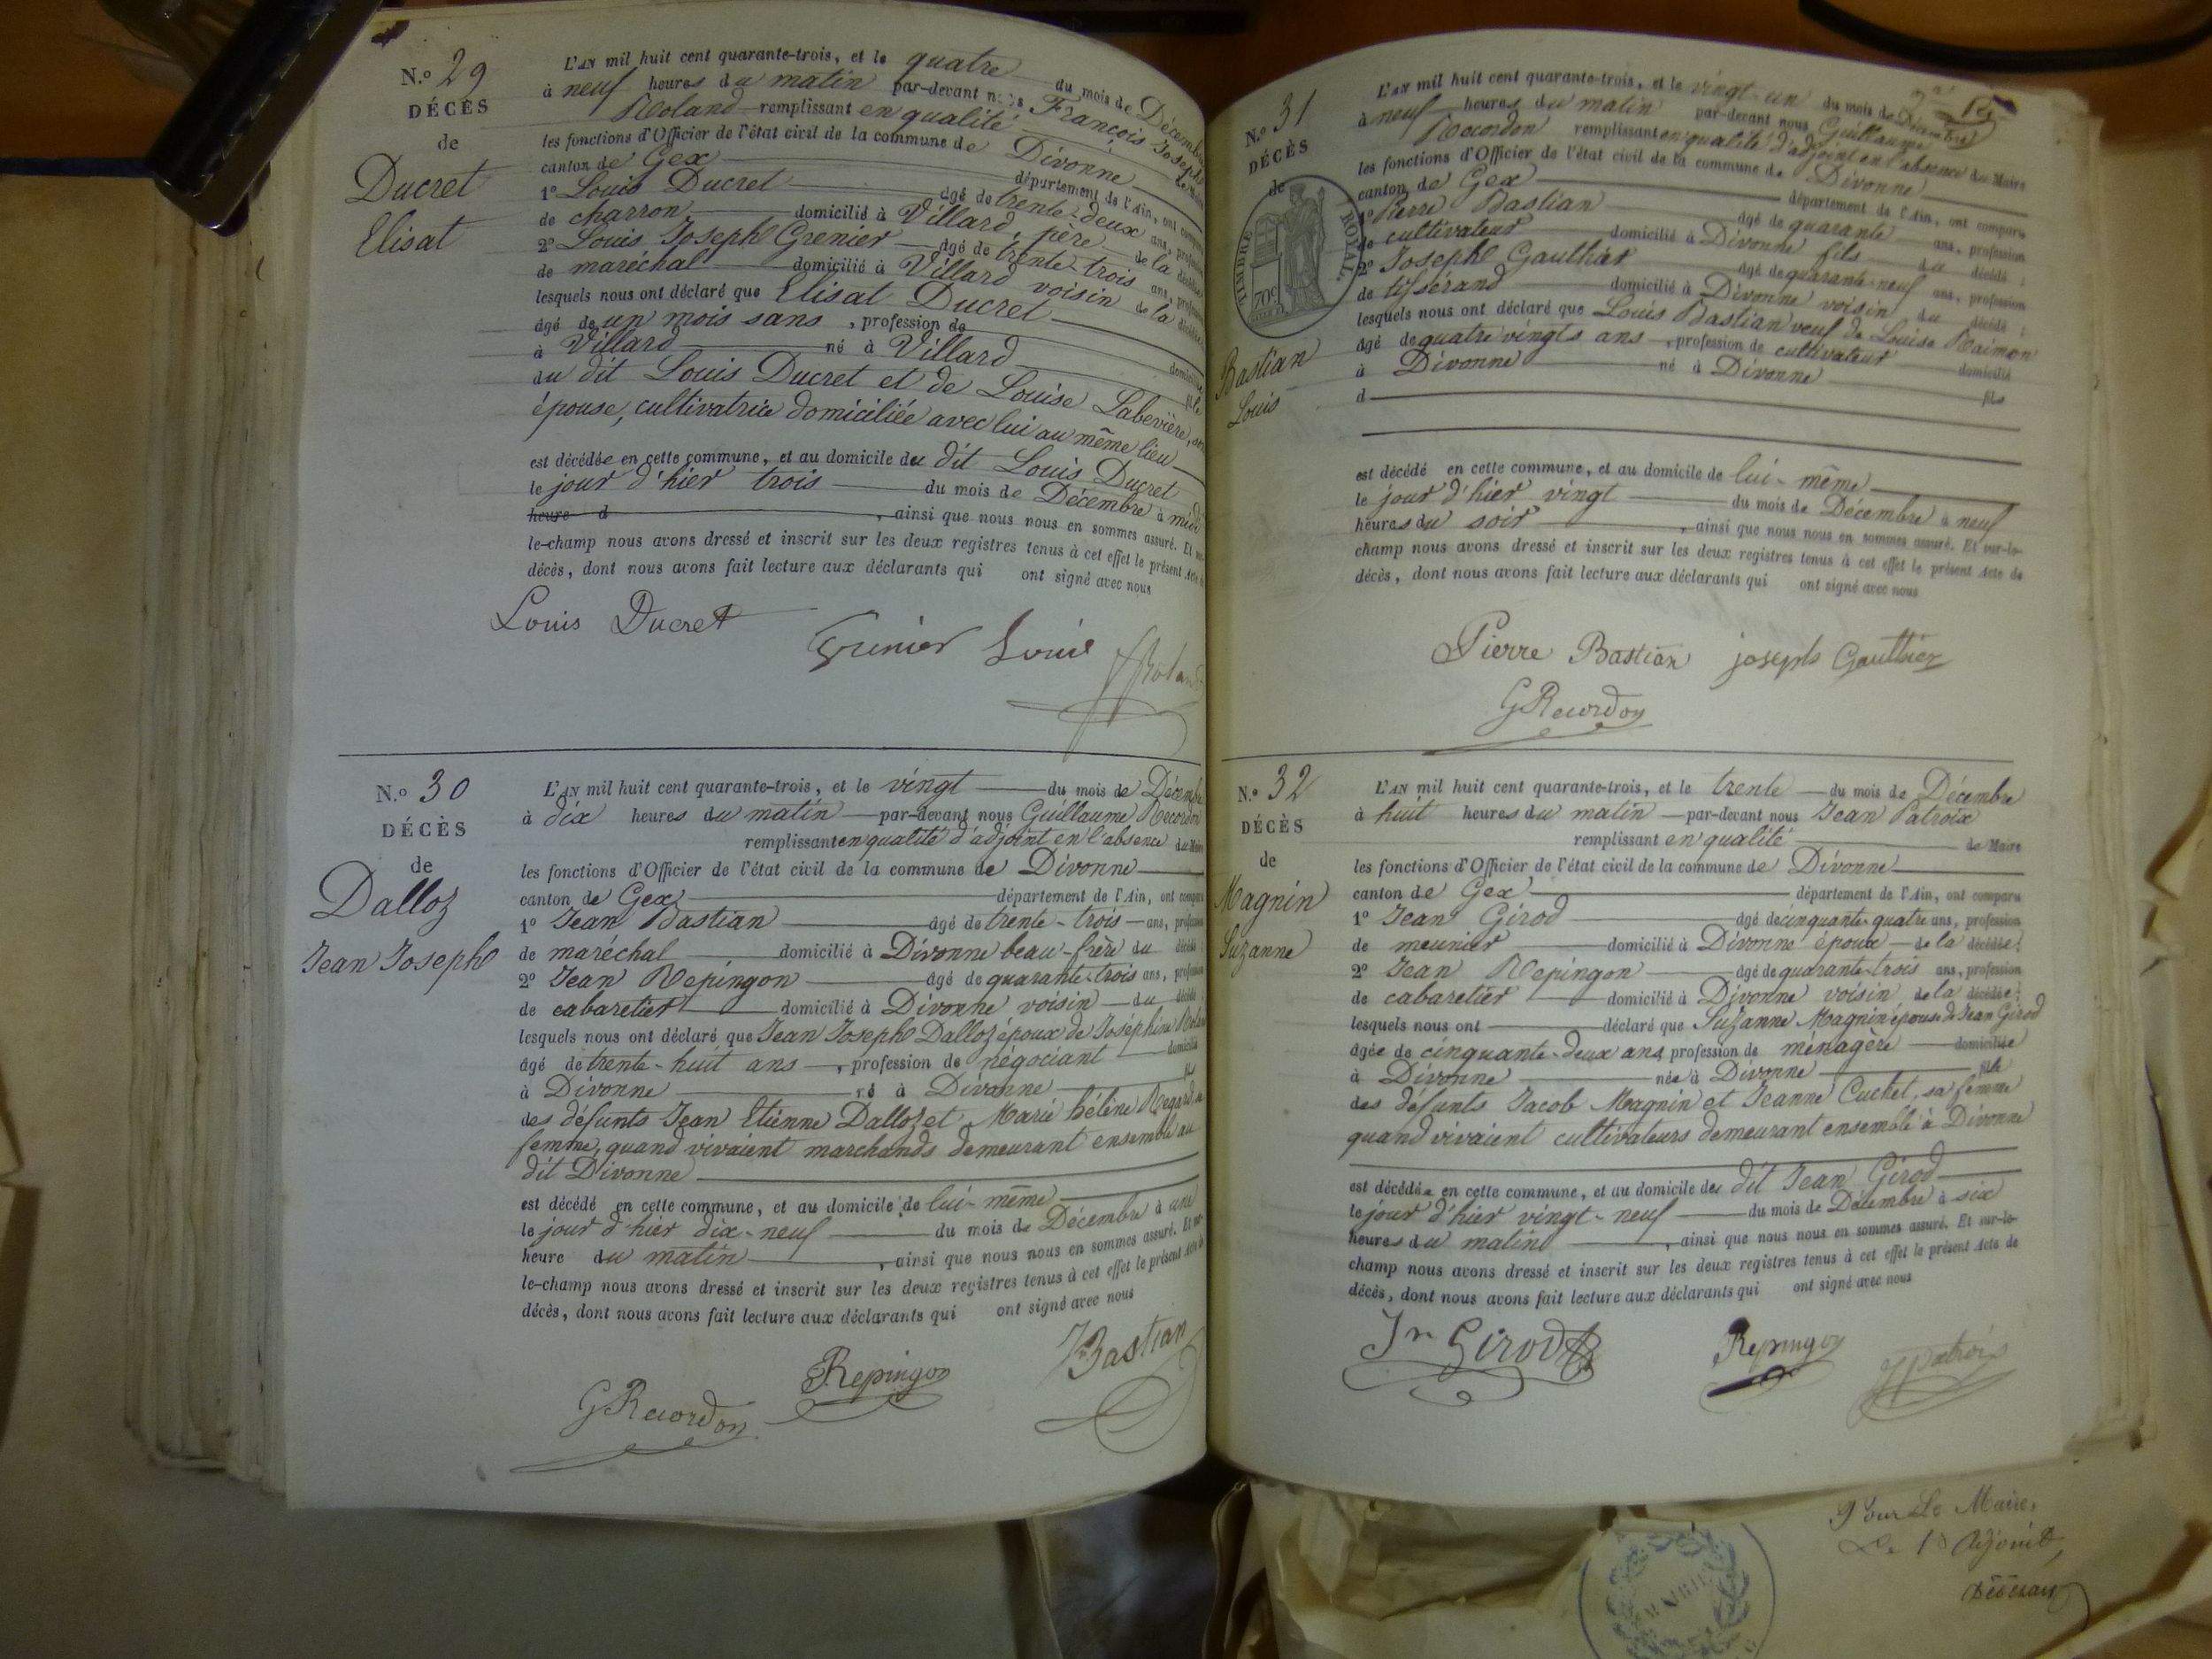 N.º 29
DÉCÈS
de
Ducret
Elisat
L'AN mil huit cent quarante-trois, et le quatre du mois de Décembre
à neuf heures du matin par-devant nous François Joseph
Roland remplissant en qualité de Maire
les fonctions d'Officier de l'état civil de la commune de Divonne
canton de Gex département de l'Ain, ont comparu
1º Louis Ducret âgé de trente-deux ans, profession
de charron domicilié à Villard, père de la décédée
2º Louis Joseph Grenier âgé de trente-trois ans, profession
de maréchal domicilié à Villard voisin de la décédée
lesquels nous ont déclaré que Elisat Ducret
âgé de un mois sans , profession de domiciliée
à Villard né à Villard fille
du dit Louis Ducret et de Louise Labevière, son
épouse, cultivatrice domiciliée avec lui au même lieu
est décédée en cette commune, et au domicile du dit Louis Ducret
le jour d'hier trois du mois de Décembre à midi
heure d , ainsi que nous nous en sommes assuré. Et sur-
le-champ nous avons dressé et inscrit sur les deux registres tenus à cet effet le présent Acte de
décès, dont nous avons fait lecture aux déclarants qui ont signé avec nous
Louis Ducret
Grenier Louis
Roland
N.º 30
DÉCÈS
de
Dalloz
Jean Joseph
L'AN mil huit cent quarante-trois, et le vingt du mois de Décembre
à dix heures du matin par-devant nous Guillaume Recordon
remplissant en qualité d'adjoint en l'absence du Maire
les fonctions d'Officier de l'état civil de la commune de Divonne
canton de Gex département de l'Ain, ont comparu
1º Jean Bastian âgé de trente-trois ans, profession
de maréchal domicilié à Divonne beau-frère du décédé
2º Jean Repingon âgé de quarante-trois ans, profession
de cabaretier domicilié à Divonne voisin du décédé
lesquels nous ont déclaré que Jean Joseph Dalloz époux de Joséphine
âgé de trente-huit ans , profession de négociant domicilié
à Divonne né à Divonne fils
des défunts Jean Etienne Dalloz et Marie hélène Regard, sa
femme, quand vivaient marchands demeurant ensemble au
dit Divonne
est décédé en cette commune, et au domicile de lui-même
le jour d'hier dix-neuf du mois de Décembre à une
heure du matin , ainsi que nous nous en sommes assuré. Et sur-
le-champ nous avons dressé et inscrit sur les deux registres tenus à cet effet le présent Acte de
décès, dont nous avons fait lecture aux déclarants qui ont signé avec nous
JnBastian
Repingon
GRecordon
N.º 31
DÉCÈS
de
TIMBRE ROYAL
70c
Bastian
Louis
L'AN mil huit cent quarante-trois, et le vingt-un du mois de Décembre
à neuf heures du matin par-devant nous Guillaume
Recordon remplissant en qualité d'adjoint en l'absence du Maire
les fonctions d'Officier de l'état civil de la commune de Divonne
canton de Gex département de l'Ain, ont comparu
1º Pierre Bastian âgé de quarante ans, profession
de cultivateur domicilié à Divonne fils du décédé ;
2º Joseph Gauthier âgé de quarante-neuf ans, profession
de tisserand domicilié à Divonne voisin du décédé ;
lesquels nous ont déclaré que Louis Bastian veuf de Louise Raimon
âgé de quatre vingts ans , profession de cultivateur domicilié
à Divonne né à Divonne fils
d
est décédé en cette commune, et au domicile de lui-même
le jour d'hier vingt du mois de Décembre à neuf
heures du soir , ainsi que nous nous en sommes assuré. Et sur-le-
champ nous avons dressé et inscrit sur les deux registres tenus à cet effet le présent Acte de
décès, dont nous avons fait lecture aux déclarants qui ont signé avec nous
Pierre Bastian joseph Gauthier
GRecordon
N.º 32
DÉCÈS
de
Magnin
Suzanne
L'AN mil huit cent quarante-trois, et le trente du mois de Décembre
à huit heures du matin par-devant nous Jean Patroix
remplissant en qualité de Maire
les fonctions d'Officier de l'état civil de la commune de Divonne
canton de Gex département de l'Ain, ont comparu
1º Jean Girod âgé de cinquante-quatre ans, profession
de meunier domicilié à Divonne époux de la décédée ;
2º Jean Repingon âgé de quarante-trois ans, profession
de cabaretier domicilié à Divonne voisin de la décédée ;
lesquels nous ont déclaré que Suzanne Magnin épouse de Jean Girod
âgée de cinquante-deux ans, profession de ménagère domiciliée
à Divonne née à Divonne fille
des défunts Jacob Magnin et Jeanne Cuchet, sa femme
quand vivaient cultivateurs demeurant ensemble à Divonne
est décédée en cette commune, et au domicile du dit Jean Girod
le jour d'hier vingt-neuf du mois de Décembre à six
heures du matin , ainsi que nous nous en sommes assuré. Et sur-le-
champ nous avons dressé et inscrit sur les deux registres tenus à cet effet le présent Acte de
décès, dont nous avons fait lecture aux déclarants qui ont signé avec nous
Jn Girod
Repingon
JPatroix
Pour Le Maire,
Le 1º Adjoint,
MAIRIE